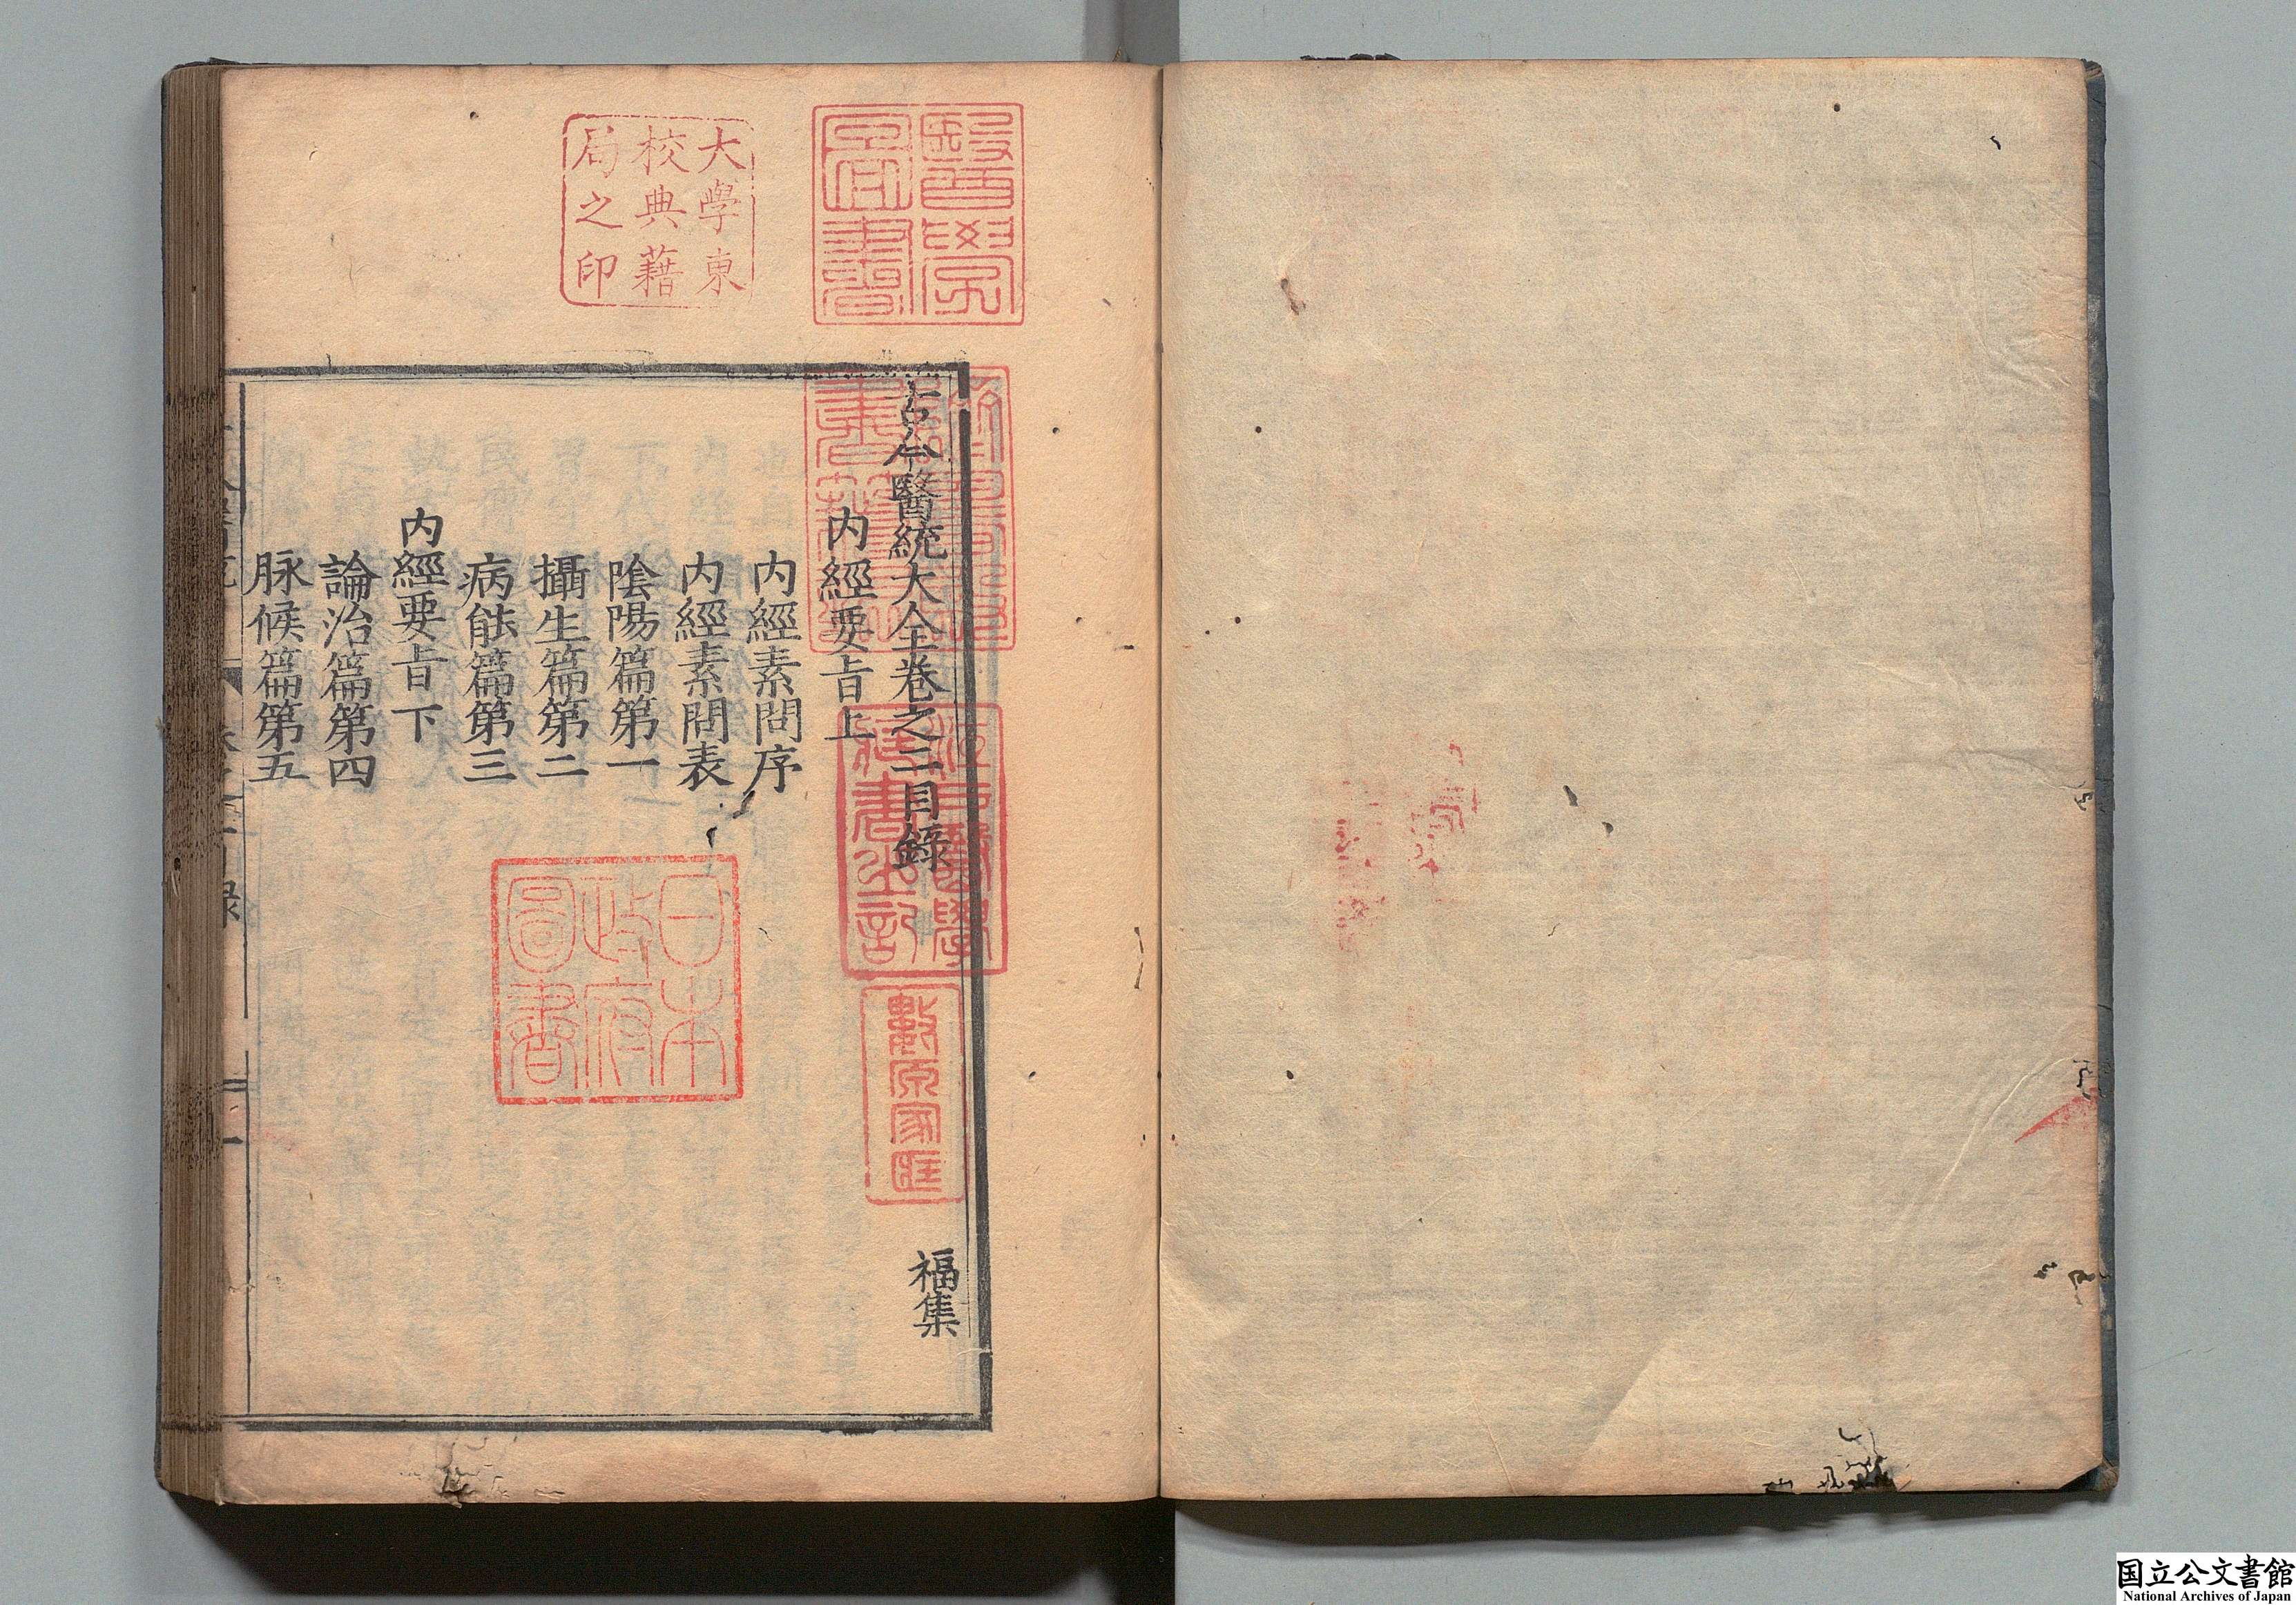 古今醫統大全卷之二目錄
福集
内經要旨上
内經素問序
内經素問表
隂陽篇第一
攝生篇第二
病能篇第三
内經要旨下
論治篇第四
脉候篇第五
醫學
圖書
大學東
校典藉
局之印
江戸醫學
藏書之記
數原家
日本
政府
圖書
国立公文書館
National Archives of Japan